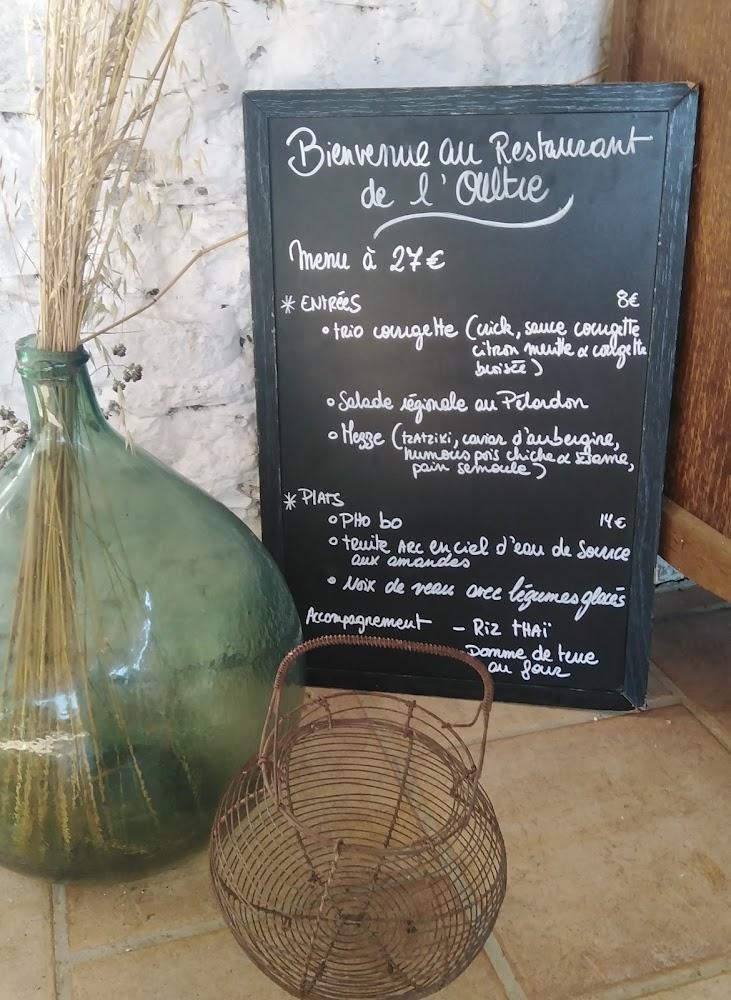 Bienvenue au Restaurant
de l'Oultre
Menu à 27€
* ENTRÉES 8€
• trio courgette (crick, sauce courgette
citron menthe & courgette
braisée)
• Salade régionale au Pélardon
• Mezze (TZATZIKI, caviar d'aubergine,
humous pois chiche & sésame,
pain semoule)
* PLATS
• PHO bo 14€
• truite ARC en ciel d'eau de Source
aux amandes
• Noix de veau avec légumes glacés
Accompagnement - Riz THAÏ
Pomme de terre
au four